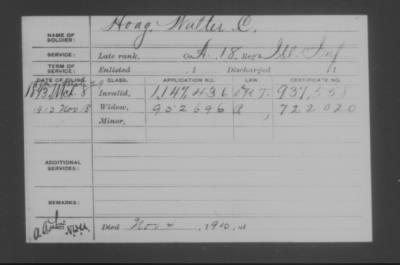 NAME OF SOLDIER: Hoag, Walter C.
SERVICE: Late rank, Co. A, 18, Reg't Ill. Inf
TERM OF SERVICE: Enlisted , 1 Discharged , 1
DATE OF FILING. CLASS. APPLICATION NO. LAW. CERTIFICATE NO.
Invalid, 1,147,436
1912 Nov 18 Widow, 952696 722020
Minor,
ADDITIONAL SERVICES:
REMARKS:
Died Nov 4, 1910, at